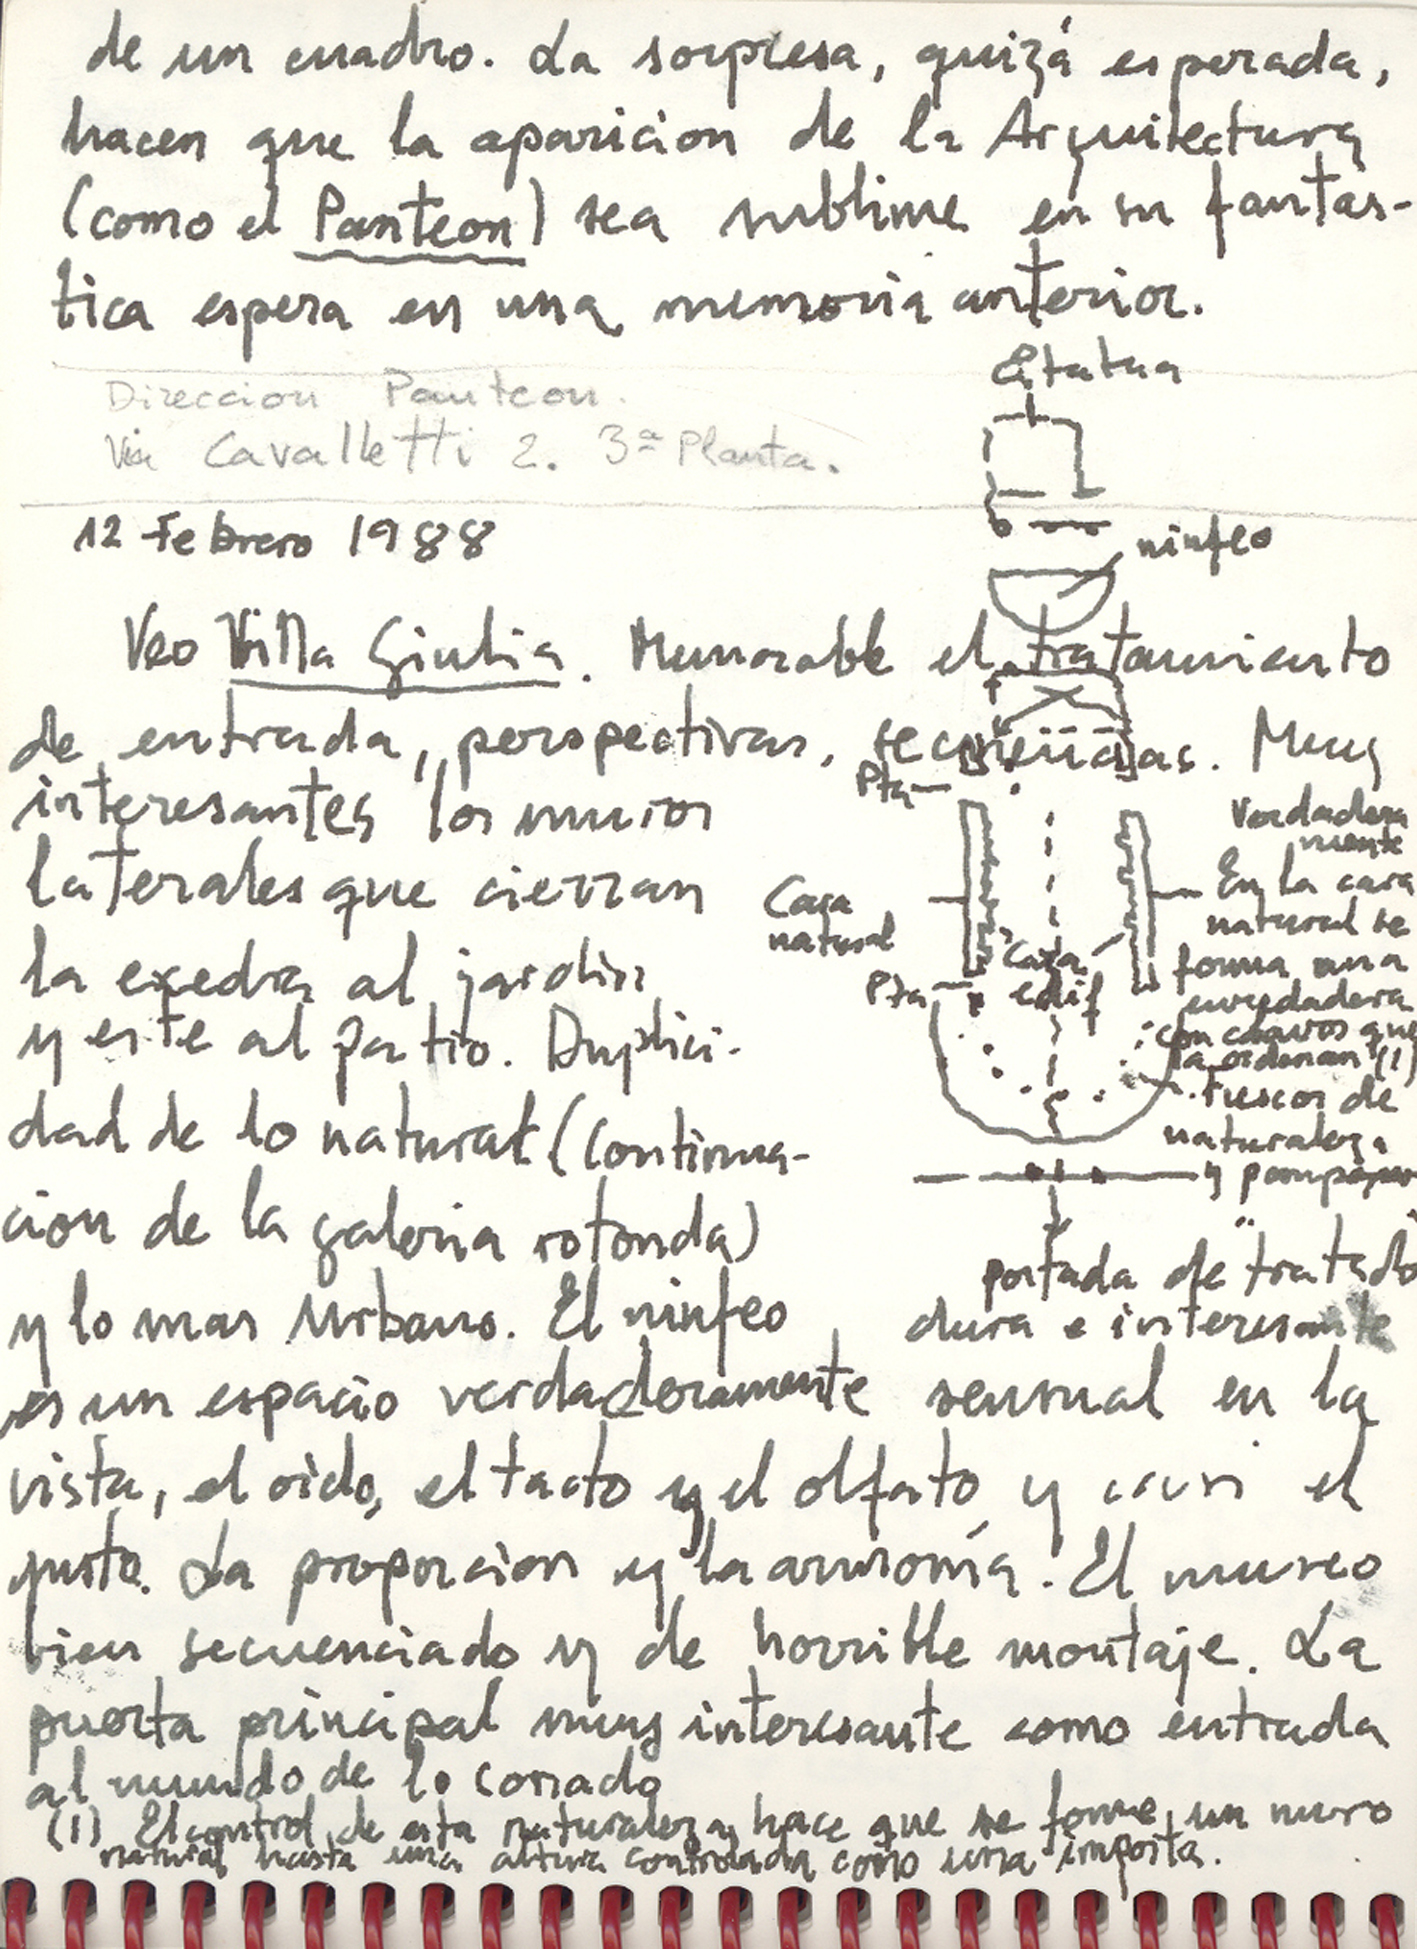 de un cuadro. La sorpresa, quizá esperada,
hacen que la aparicion de la Arquitectura
(como el Panteon) sea sublime en su fantas-
tica espera en una memoria anterior.
Direccion Panteon.
Via Cavalletti 2. 3ª Planta.
Estatua
12 Febrero 1988
ninfeo
Veo Villa Giulia. Memorable el tratamiento
de entrada, perspectivas, secuencias. Muy
interesantes los muros
laterales que cierran
la exedra al jardin
y este al patio. Duplici-
dad de lo natural (Continua-
cion de la galeria rotonda)
y lo mas Urbano. El ninfeo
es un espacio verdaderamente sensual en la
vista, el oido, el tacto y el olfato y casi el
gusto. La proporcion y la armonía. El museo
bien secuenciado y de horrible montaje. La
puerta principal muy interesante como entrada
al mundo de lo
Pta
Cara
natural
Pta
Cara
edif
Verdadera
mente
En la cara
natural se
forma una
enredadera
con clavos que
la ordenan (1)
Frescos de
naturaleza
y
portada de "tratado"
dura e interesante
(1) El control de esta naturaleza hace que se forme un muro
natural hasta una altura controlada como una imposta.